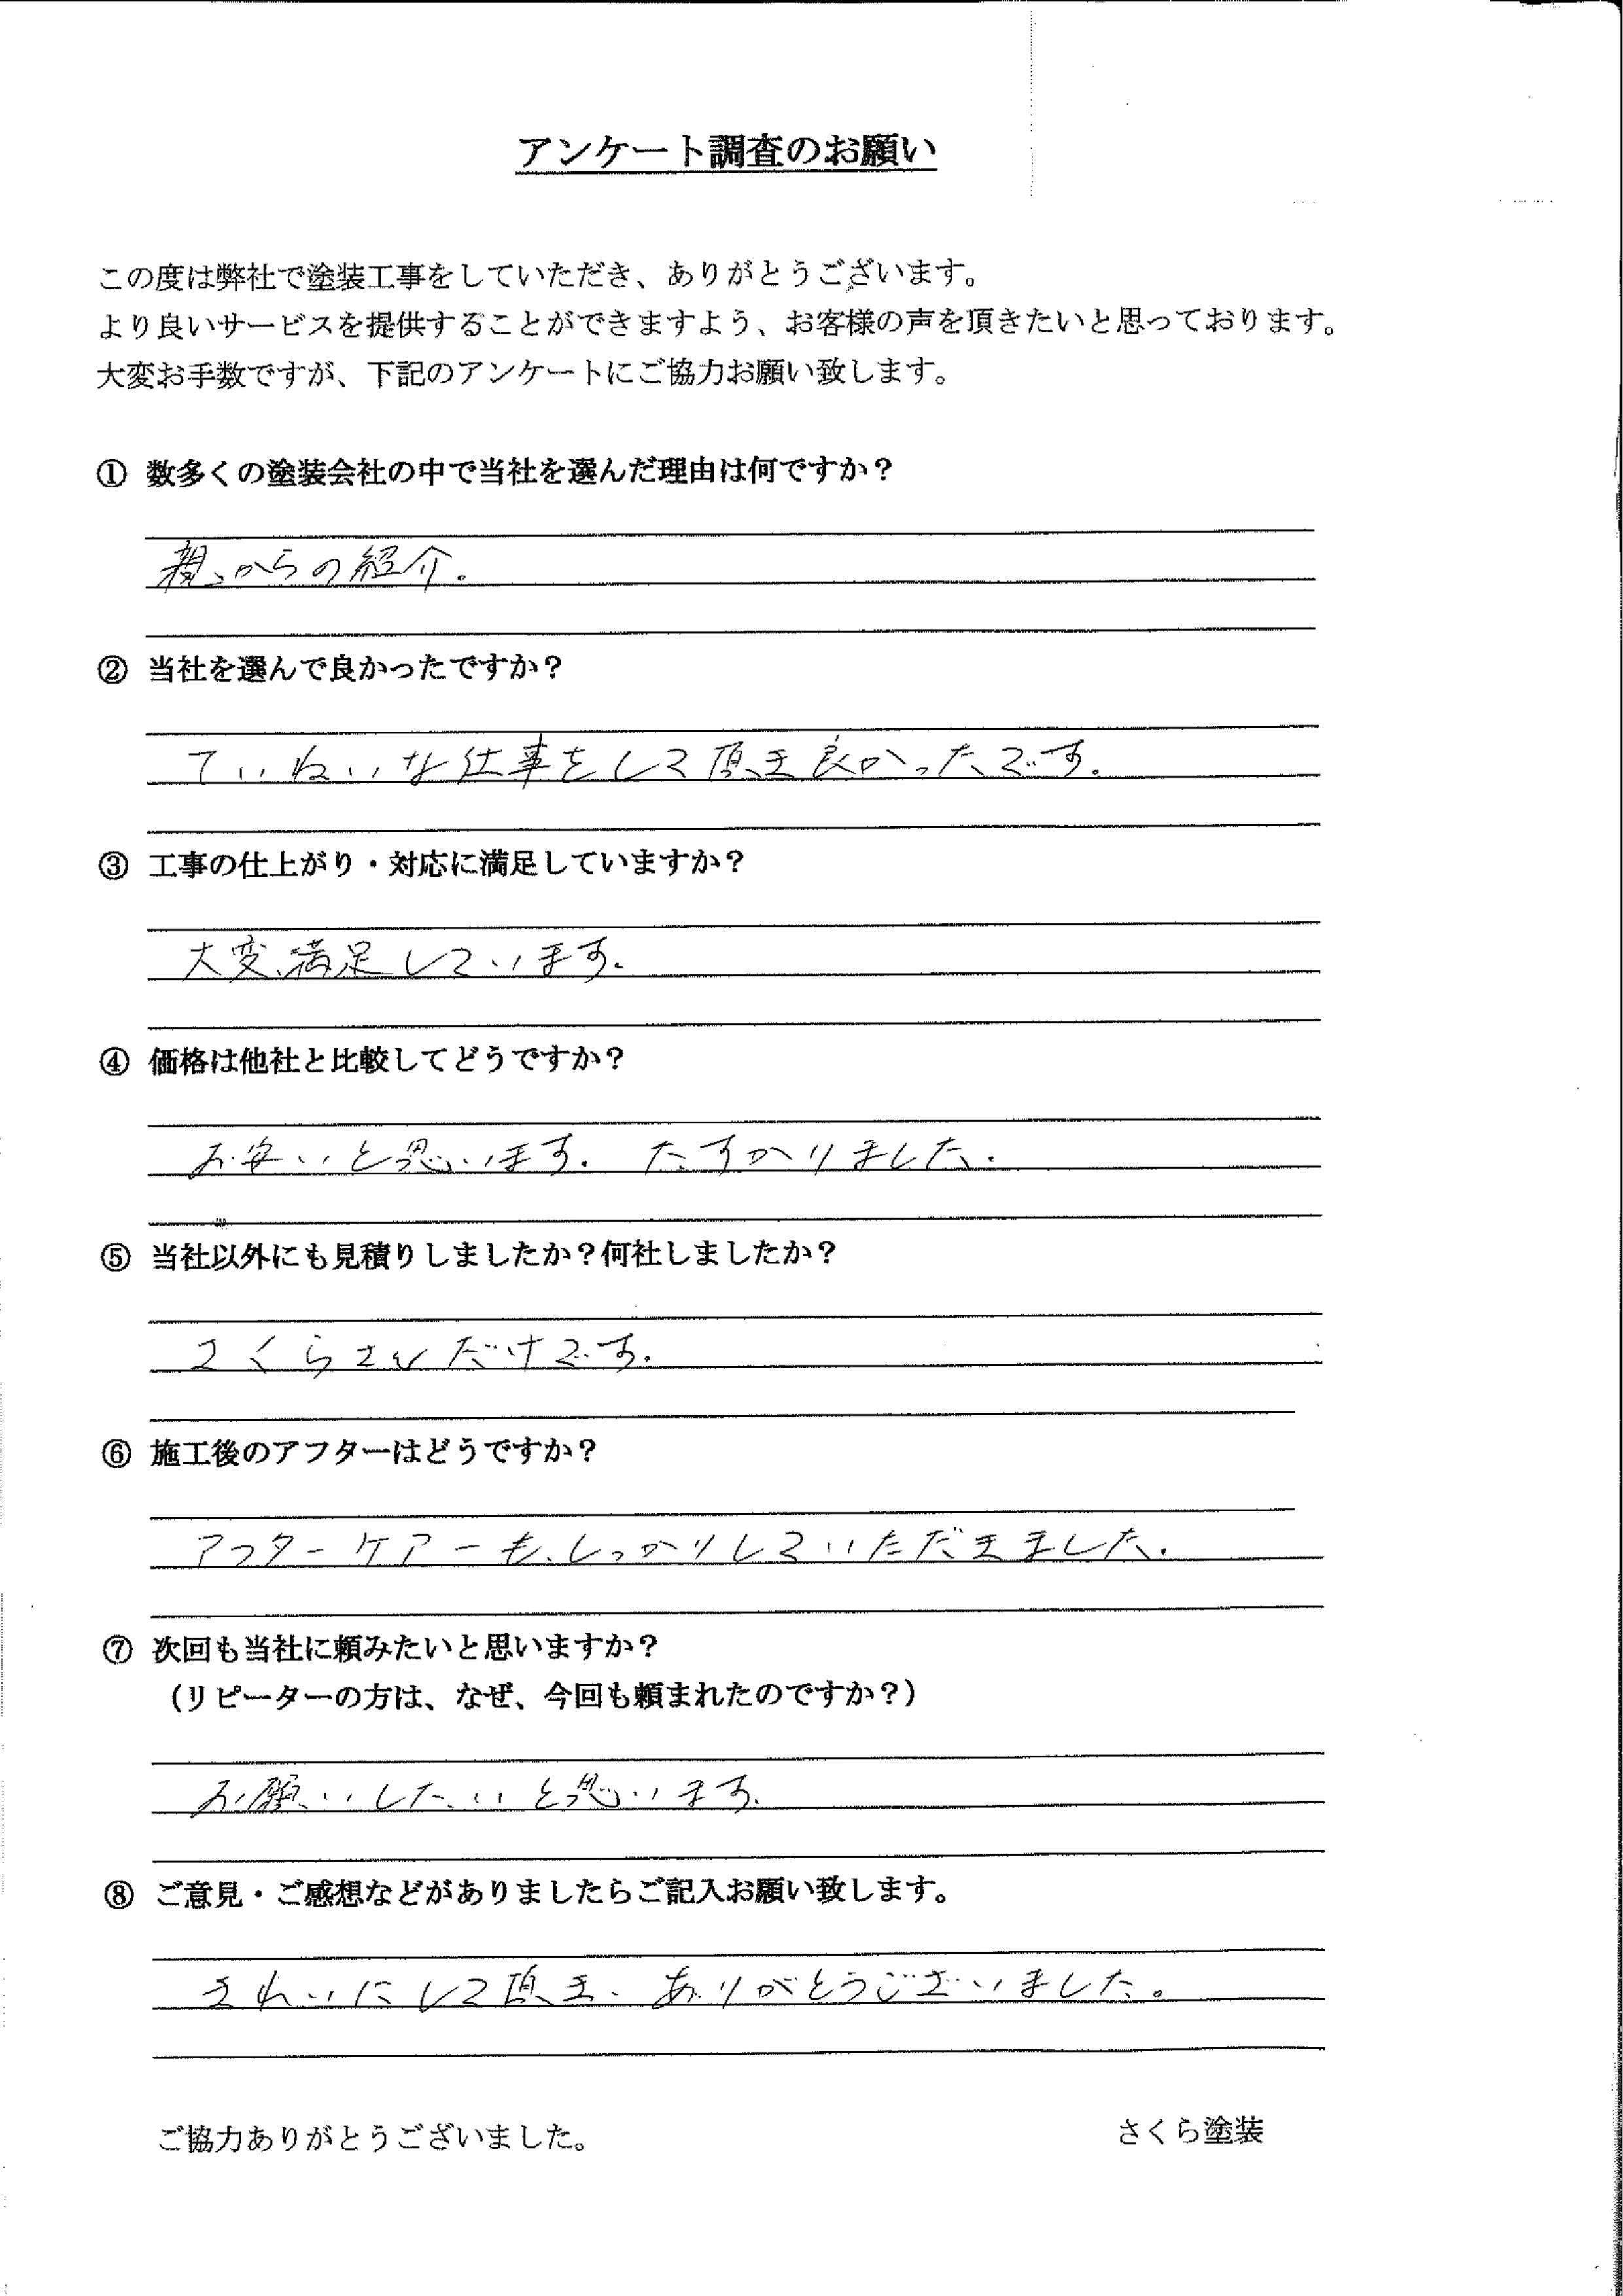 アンケート調査のお願い
この度は弊社で塗装工事をしていただき、ありがとうございます。
より良いサービスを提供することができますよう、お客様の声を頂きたいと思っております。
大変お手数ですが、下記のアンケートにご協力お願い致します。
① 数多くの塗装会社の中で当社を選んだ理由は何ですか？
親からの紹介。
② 当社を選んで良かったですか？
ていねいな仕事をして頂き良かったです.
③ 工事の仕上がり・対応に満足していますか？
大変満足しています.
④ 価格は他社と比較してどうですか？
お安いと思います. たすかりました.
⑤ 当社以外にも見積りしましたか？何社しましたか？
さくらさんだけです.
⑥ 施工後のアフターはどうですか？
アフターケアーも、しっかりしていただきました.
⑦ 次回も当社に頼みたいと思いますか？
（リピーターの方は、なぜ、今回も頼まれたのですか？）
お願いしたいと思います.
⑧ ご意見・ご感想などがありましたらご記入お願い致します。
きれいにして頂き、ありがとうございました。
ご協力ありがとうございました。
さくら塗装